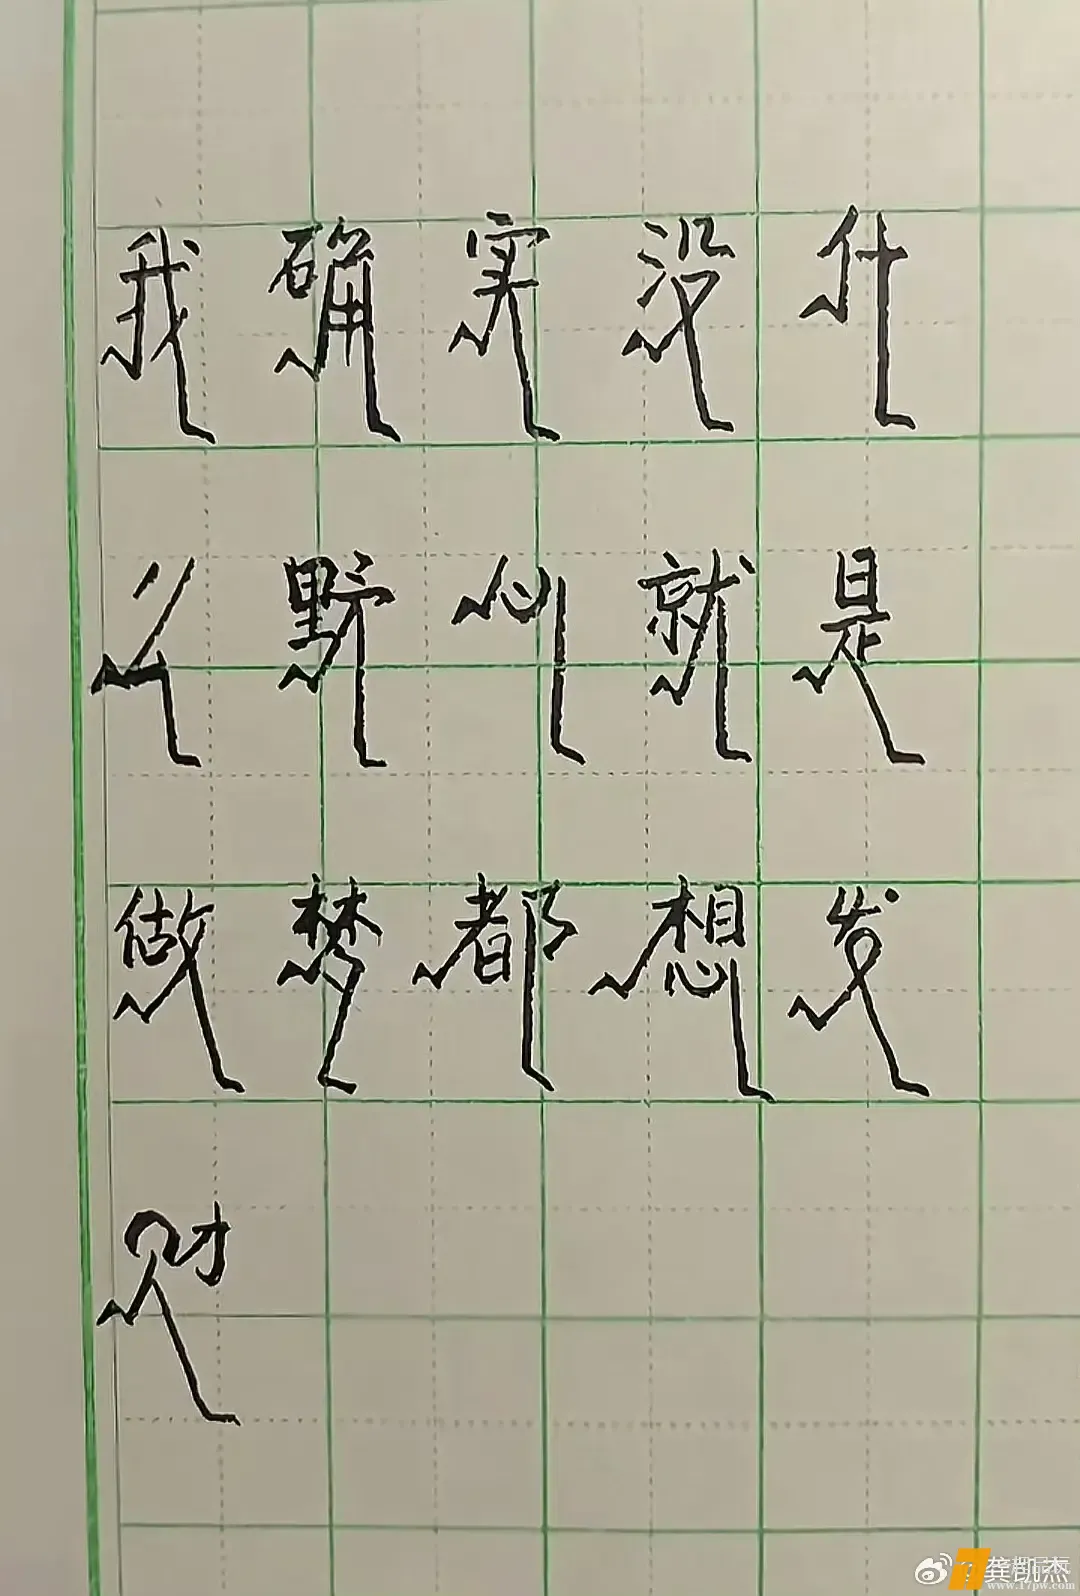 我确实没什
么野心就是
做梦都想发
财
@龚凯杰
www.17pw.com